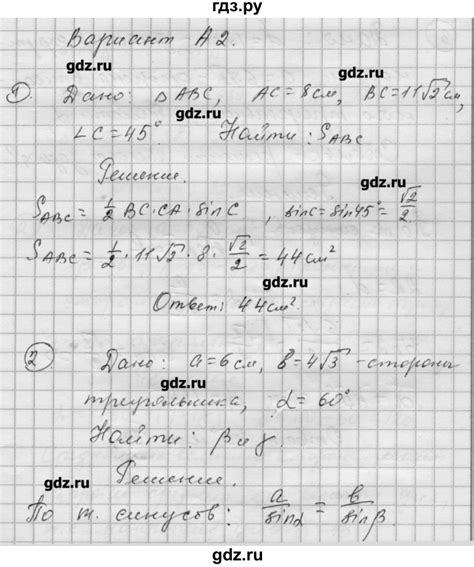 гдз.ру
Вариант А2.
gdz.ru
gdz.ru
① Дано: △ABC, AC=8см, BC=11√2см,
∠C=45°. Найти: S_ABC
gdz.ru
gdz.ru
Решение.
S_ABC = 1/2 BC·CA·sin C, sin C = sin 45° = √2/2
S_ABC = 1/2 · 11√2 · 8 · √2/2 = 44 см²
gdz.ru
gdz.ru
Ответ: 44 см².
② Дано: a=6 см, b=4√3 - стороны
gdz.ru
треугольника, α=60°
gdz.ru
Найти: β и γ.
gdz.ru
Решение.
gdz.ru
По т. синусов: a/sinα = b/sinβ.
gdz.ru